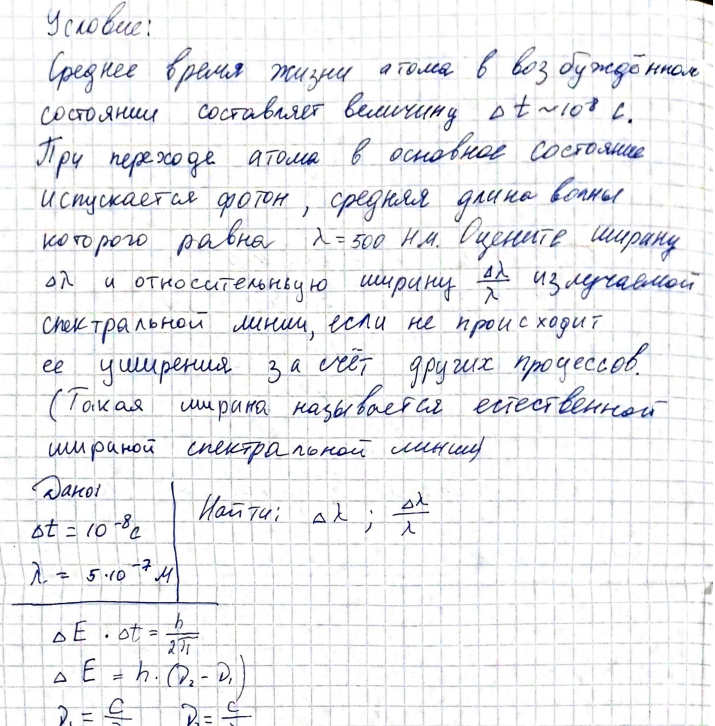 Условие:
Среднее время жизни атома в возбуждённом
состоянии составляет величину Δt ~ 10⁸ с.
При переходе атома в основное состояние
испускается фотон, средняя длина волны
которого равна λ = 500 нм. Оцените ширину
Δλ и относительную ширину Δλ/λ излучаемой
спектральной линии, если не происходит
ее уширения за счёт других процессов.
(Такая ширина называется естественной
шириной спектральной линии)
Дано: Найти: Δλ ; Δλ/λ
Δt = 10⁻⁸ с
λ = 5·10⁻⁷ м
ΔE · Δt = h/2π
ΔE = h · (ν₂ - ν₁)
ν₁ = c/ ν₂ = c/